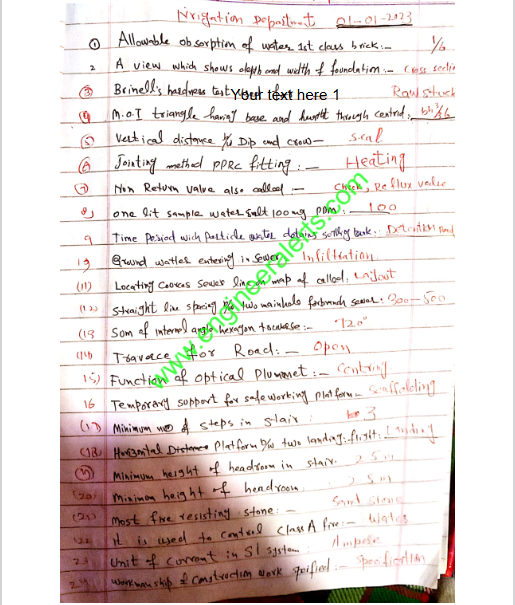 Nrigation Department 01-01-2023
① Allowable obsorption of water 1st class brick:- 1/6
2 A view which shows depth and width of foundation:- Cross section
③ Brinell's hardness test Your text here 1 Raw stuck
④ M.O.I triangle having base and height through centrd:- bh³/36
⑤ Vertical distance b/w Dip and crow— seal
⑥ Jointing method PPRC fitting:— Heating
⑦ Non Return value also called:— check, Reflux valve
8, one lit sample water salt 100mg PPM:- 100
9 Time Period wich Particle water detains settling tank:- Detention
10 Ground watter entering in sewer Infiltration
(11) Locating Cources sewer line on map of called, Layout
(12) straight line spacing b/w two mainhole for branch sewer: 300-500
(13 Som of internal angle hexagon traverse:- 720°
(14) Traverse for Road:— Open
15) Function of optical Plummet:- Centring
16 Temporary support for safe working Platform- Scaffolding
(17) Minimum no of steps in stair: 3
(18 Horizontal Distance Platform b/w two landing: flight: Landing
⑲ Minimum height of headroom in stair: 2.5 m
(20) Minimum height of headroom: 2.5 m
(21) Most fire resisting stone:- Sand stone
22 It is used to control class A fire:- Water
23 Unit of current in SI system: Ampere
24 workmanship & construction work speified:- Specification
www.engineeralerts.com